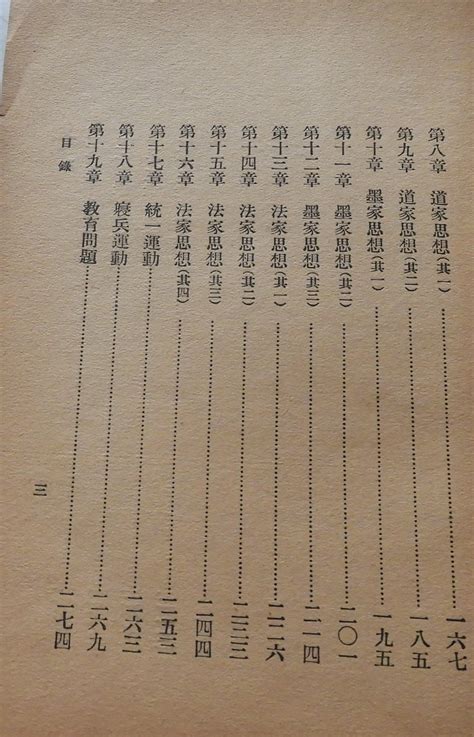 第八章 道家思想(其一)…………一六七
第九章 道家思想(其二)…………一八五
第十章 墨家思想(其一)…………一九五
第十一章 墨家思想(其二)…………二〇一
第十二章 墨家思想(其三)…………二一四
第十三章 法家思想(其一)…………二二六
第十四章 法家思想(其二)…………二三三
第十五章 法家思想(其三)…………二四四
第十六章 法家思想(其四)…………二五三
第十七章 統一運動…………二六三
第十八章 寢兵運動…………二六九
第十九章 教育問題…………二七四
目錄
三